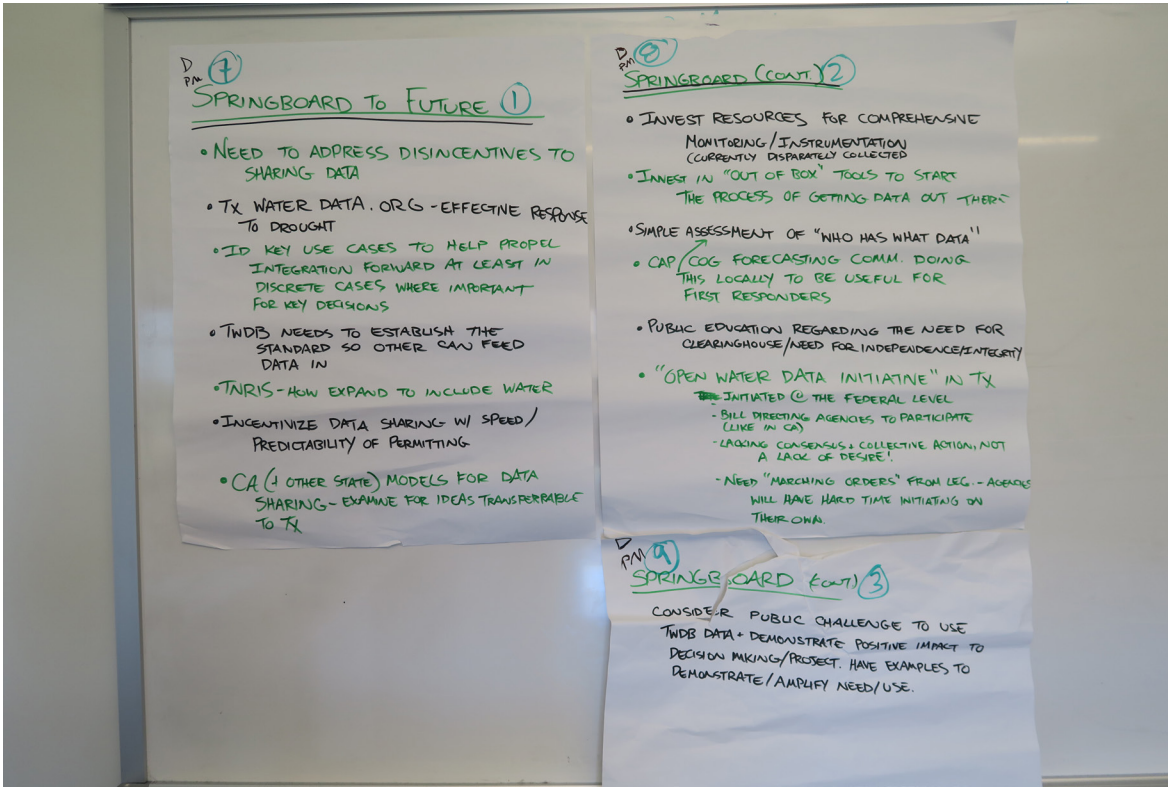 D
PM 7
SPRINGBOARD TO FUTURE 1
• NEED TO ADDRESS DISINCENTIVES TO
SHARING DATA
• TX WATER DATA.ORG - EFFECTIVE RESPONSE
TO DROUGHT
• ID KEY USE CASES TO HELP PROPEL
INTEGRATION FORWARD AT LEAST IN
DISCRETE CASES WHERE IMPORTANT
FOR KEY DECISIONS
• TWDB NEEDS TO ESTABLISH THE
STANDARD SO OTHER CAN FEED
DATA IN
• TNRIS - HOW EXPAND TO INCLUDE WATER
• INCENTIVIZE DATA SHARING W/ SPEED/
PREDICTABILITY OF PERMITTING
• CA (+ OTHER STATE) MODELS FOR DATA
SHARING - EXAMINE FOR IDEAS TRANSFERRABLE
TO TX
D
PM 8
SPRINGBOARD (CONT.) 2
• INVEST RESOURCES FOR COMPREHENSIVE
MONITORING/INSTRUMENTATION
(CURRENTLY DISPARATELY COLLECTED
• INVEST IN "OUT OF BOX" TOOLS TO START
THE PROCESS OF GETTING DATA OUT THERE
• SIMPLE ASSESSMENT OF "WHO HAS WHAT DATA"
• CAP/COG FORECASTING COMM. DOING
THIS LOCALLY TO BE USEFUL FOR
FIRST RESPONDERS
• PUBLIC EDUCATION REGARDING THE NEED FOR
CLEARINGHOUSE/NEED FOR INDEPENDENCE/INTEGRITY
• "OPEN WATER DATA INITIATIVE" IN TX
INITIATED @ THE FEDERAL LEVEL
- BILL DIRECTING AGENCIES TO PARTICIPATE
(LIKE IN CA)
- LACKING CONSENSUS + COLLECTIVE ACTION, NOT
A LACK OF DESIRE!
- NEED "MARCHING ORDERS" FROM LEG. - AGENCIES
WILL HAVE HARD TIME INITIATING ON
THEIR OWN.
D
PM 9
SPRINGBOARD (CONT) 3
CONSIDER PUBLIC CHALLENGE TO USE
TWDB DATA + DEMONSTRATE POSITIVE IMPACT TO
DECISION MKING/PROJECT. HAVE EXAMPLES TO
DEMONSTRATE/AMPLIFY NEED/USE.